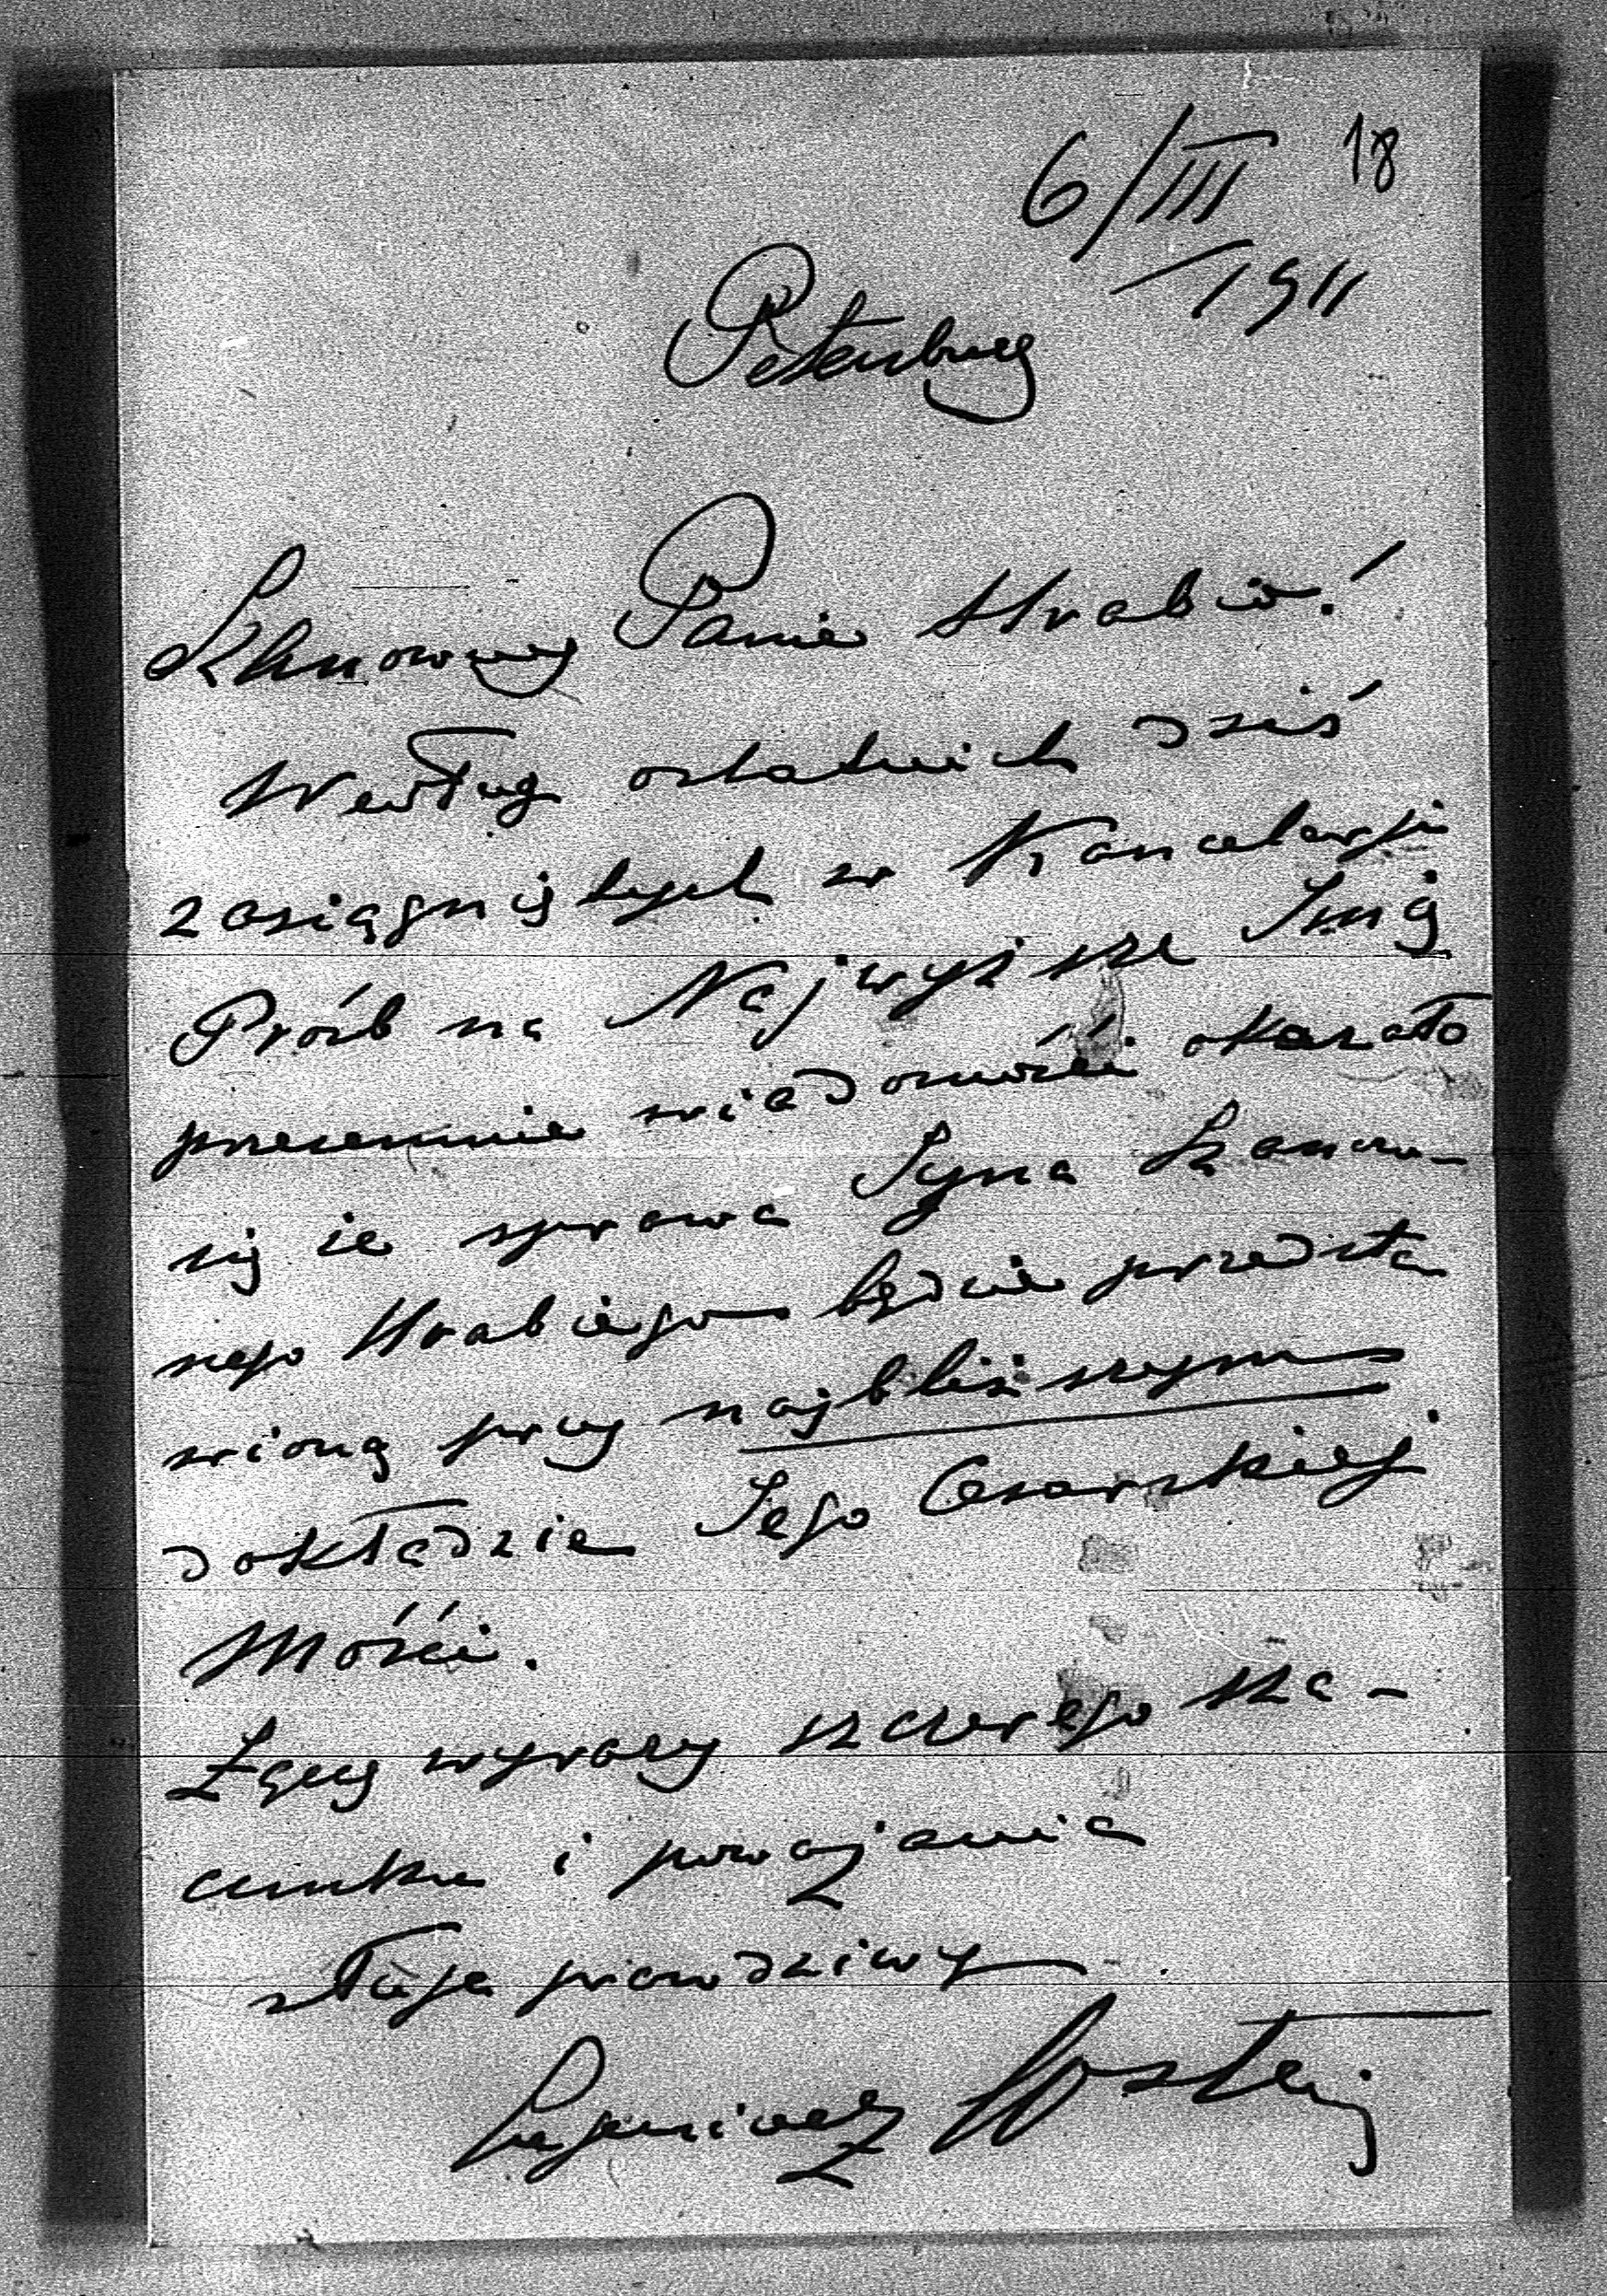 18
6/III
1911
Petersburg
Szanowny Panie Hrabio!
Według ostatnich dziś
zasiągniętych w Kancelarji
Próśb na Najwyższe Imię
przezemnie wiadomości okazało
się że sprawa Syna Szanow-
nego Hrabiego będzie przedsta
wioną przy najbliższym
dokładzie Jego Cesarskiej
Mości.
Łączę wyrazy szczerego sza-
cunku i poważania
sługa prawdziwy